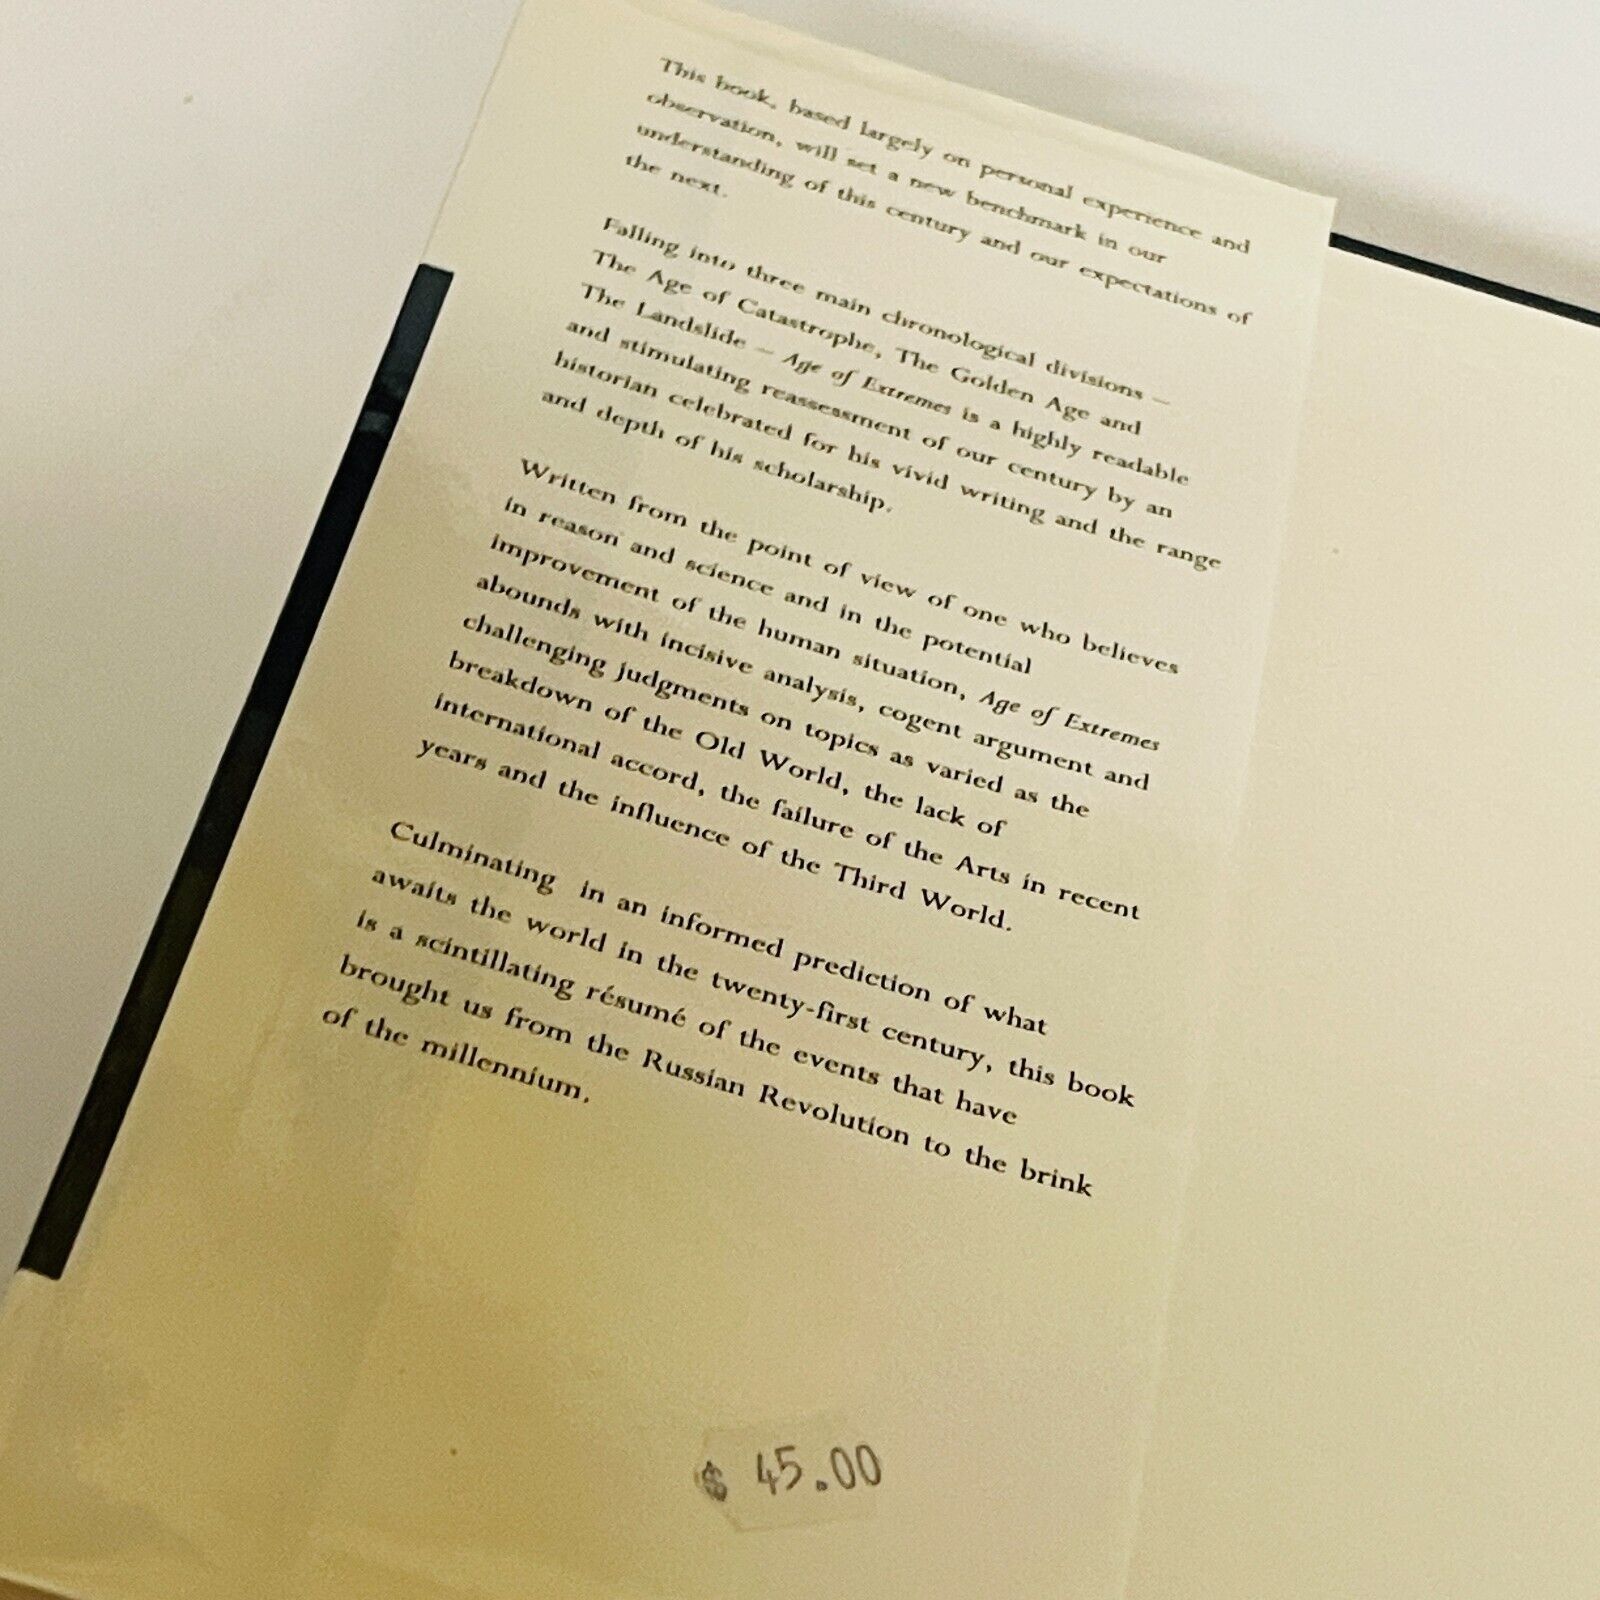 This book, based largely on personal experience and
observation, will set a new benchmark in our
understanding of this century and our expectations of
the next.
Falling into three main chronological divisions –
The Age of Catastrophe, The Golden Age and
The Landslide – Age of Extremes is a highly readable
and stimulating reassessment of our century by an
historian celebrated for his vivid writing and the range
and depth of his scholarship.
Written from the point of view of one who believes
in reason and science and in the potential
improvement of the human situation, Age of Extremes
abounds with incisive analysis, cogent argument and
challenging judgments on topics as varied as the
breakdown of the Old World, the lack of
international accord, the failure of the Arts in recent
years and the influence of the Third World.
Culminating in an informed prediction of what
awaits the world in the twenty-first century, this book
is a scintillating résumé of the events that have
brought us from the Russian Revolution to the brink
of the millennium.
$ 45.00